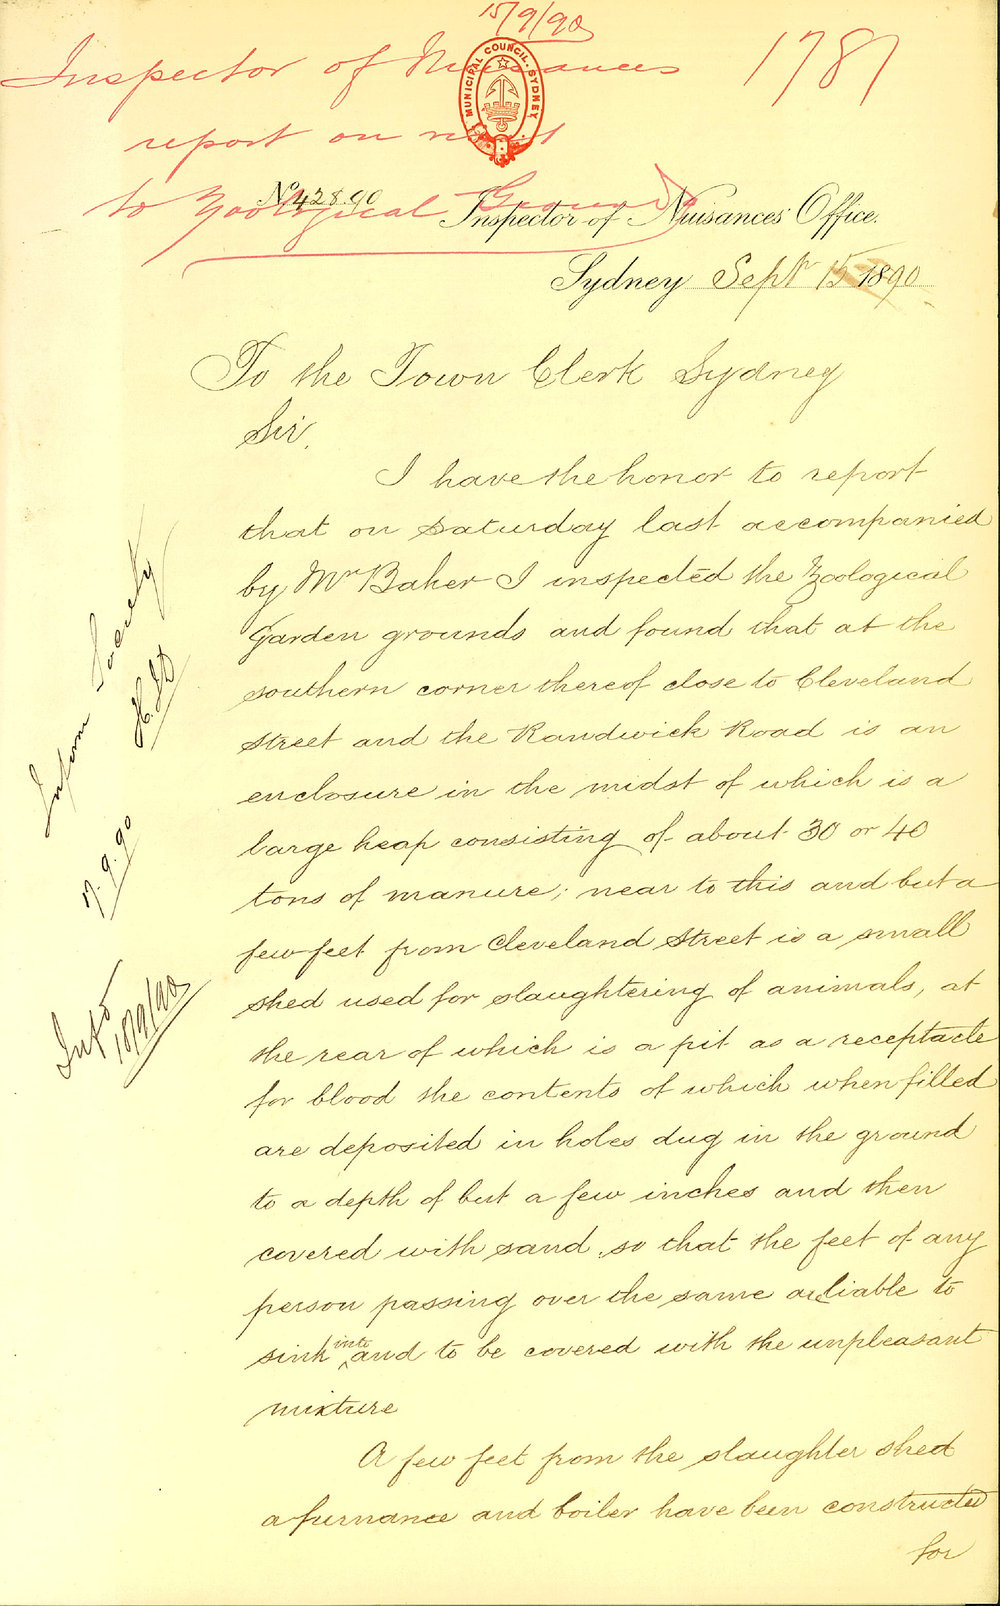 15/9/90
Inspector of Nuisances
1787
report on
to Zoological Grounds
MUNICIPAL COUNCIL. SYDNEY
No 428.90
Inspector of Nuisances' Office.
Sydney Septr 15 1890
To the Town Clerk Sydney
Sir,
I have the honor to report
that on Saturday last accompanied
by Mr Baker I inspected the Zoological
Garden grounds and found that at the
southern corner thereof close to Cleveland
Street and the Randwick Road is an
enclosure in the midst of which is a
large heap consisting of about 30 or 40
tons of manure; near to this and but a
few feet from Cleveland Street is a small
shed used for slaughtering of animals, at
the rear of which is a pit as a receptacle
for blood the contents of which when filled
are deposited in holes dug in the ground
to a depth of but a few inches and then
covered with sand, so that the feet of any
person passing over the same are liable to
sink into and to be covered with the unpleasant
mixture
A few feet from the slaughter shed
a furnance and boiler have been constructed
for
Inform Society
17.9.90
18/9/90